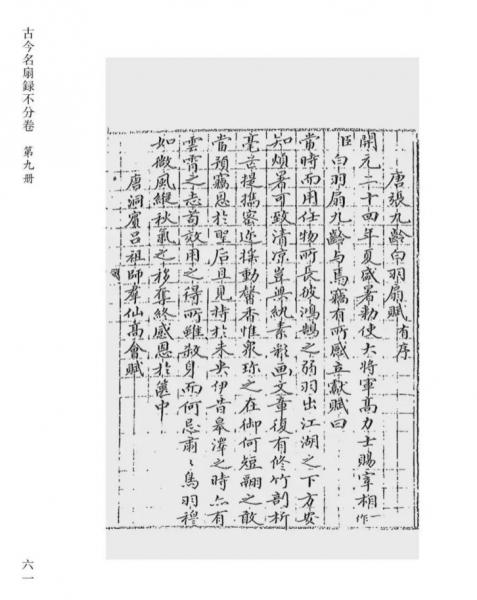 唐張九齡白羽扇賦有序
開元二十四年夏盛暑勅使大將軍高力士賜宰相
臣白羽扇九齡与焉竊有所感立獻賦曰
當時而用任物所長彼鴻鵠之弱羽出江湖之下方安
知煩暑可致清涼豈無紈素彩画文章復有修竹剖析
毫芒提擕密迩搖動馨香惟衆珍之在御何短翮之敢
當預竊恩於聖后且見持於未央伊昔皋澤之時亦有
雲霄之志苟效用之得所雖殺身而何忌肅〻鳥羽穆
如微風縱秋氣之移奪終感恩於篋中
唐洞賓呂祖師羣仙高會賦
古今名扇録不分卷 第九册
六一